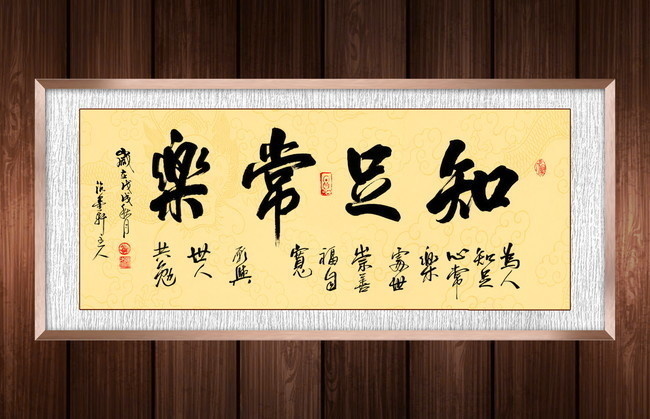 知足常樂
為人
知足
心常
樂
處世
崇善
福自
寬
願與
世人
共勉
歲在戊戌秋月
墨軒主人